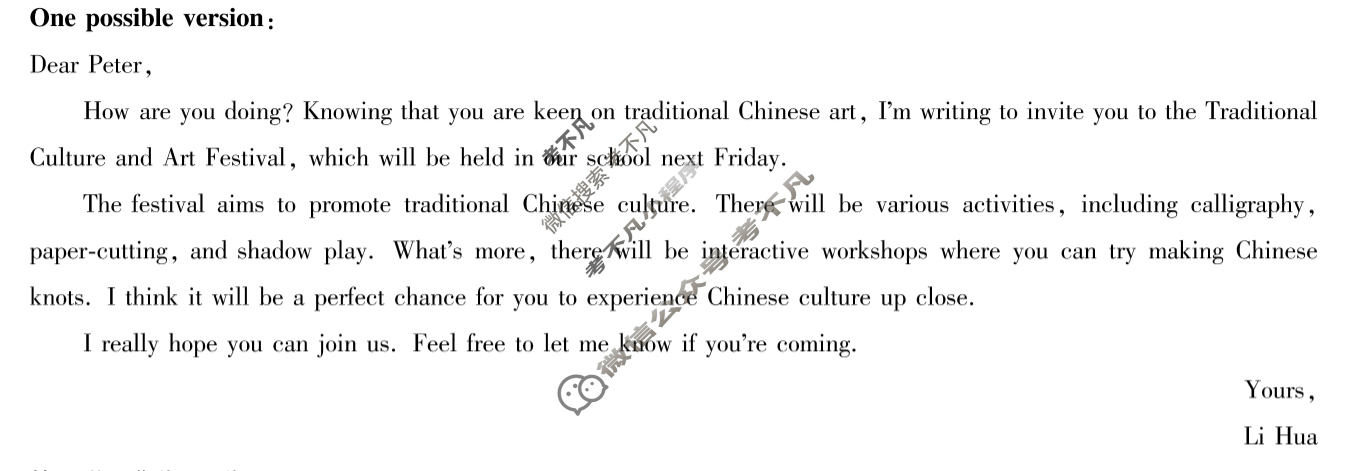 One possible version:
Dear Peter,
How are you doing? Knowing that you are keen on traditional Chinese art, I'm writing to invite you to the Traditional
Culture and Art Festival, which will be held in our school next Friday.
The festival aims to promote traditional Chinese culture. There will be various activities, including calligraphy,
paper-cutting, and shadow play. What's more, there will be interactive workshops where you can try making Chinese
knots. I think it will be a perfect chance for you to experience Chinese culture up close.
I really hope you can join us. Feel free to let me know if you're coming.
Yours,
Li Hua
微信搜索 考不凡
考不凡
考不凡小程序
微信公众号 考不凡